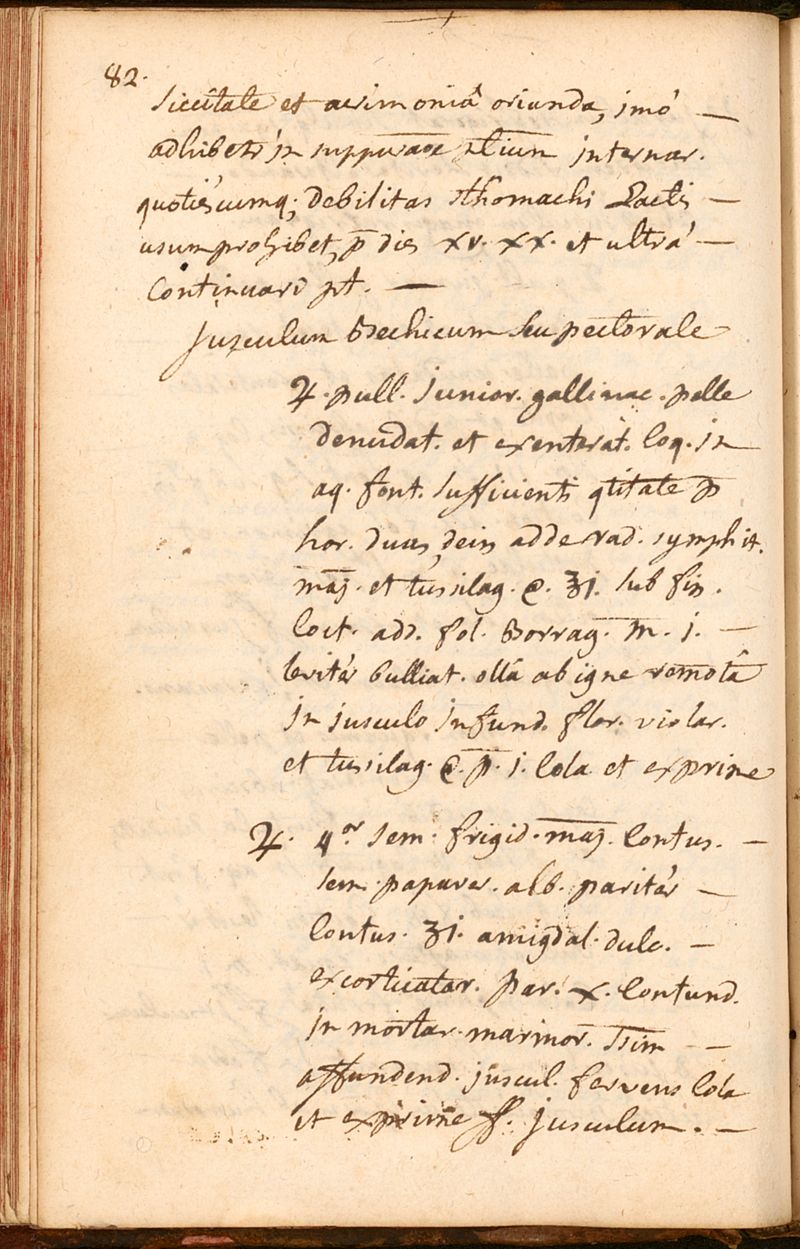 82.
siccitate et acrimoniâ oriunda, imò —
adhibetr in suppuraōe ptium internar.
quotiescumq; debilitas sthomachi Lactis —
usum prohibet, p̄ dies xv. xx. et ultrà —
Continuari pt. —
Jusculum Bechicum seu pectorale
♃. pull. junior. gallinac. pelle
denudat. et exenterat. coq. in
aq. font. sufficienti qtitate p̄
hor. duas, dein adde rad. symphit.
maj. et tussilag. a. ʒj. sub fin.
Coct. add. fol. Borrag. m. j. —
leviter bulliat. ollâ ab igne remotâ
in jusculo infund. flor. violar.
et tussilag. a. p. j. Cola et exprime
♃. 4or sem. frigid. maj. Contus. —
sem. papaver. alb. pariter —
Contus. ʒj. amigdal. dulc. —
excorticatar. par. x. Contund.
in mortar. marmor. sim —
affundend. juscul. fervens Cola
et exprime ff. jusculum. —